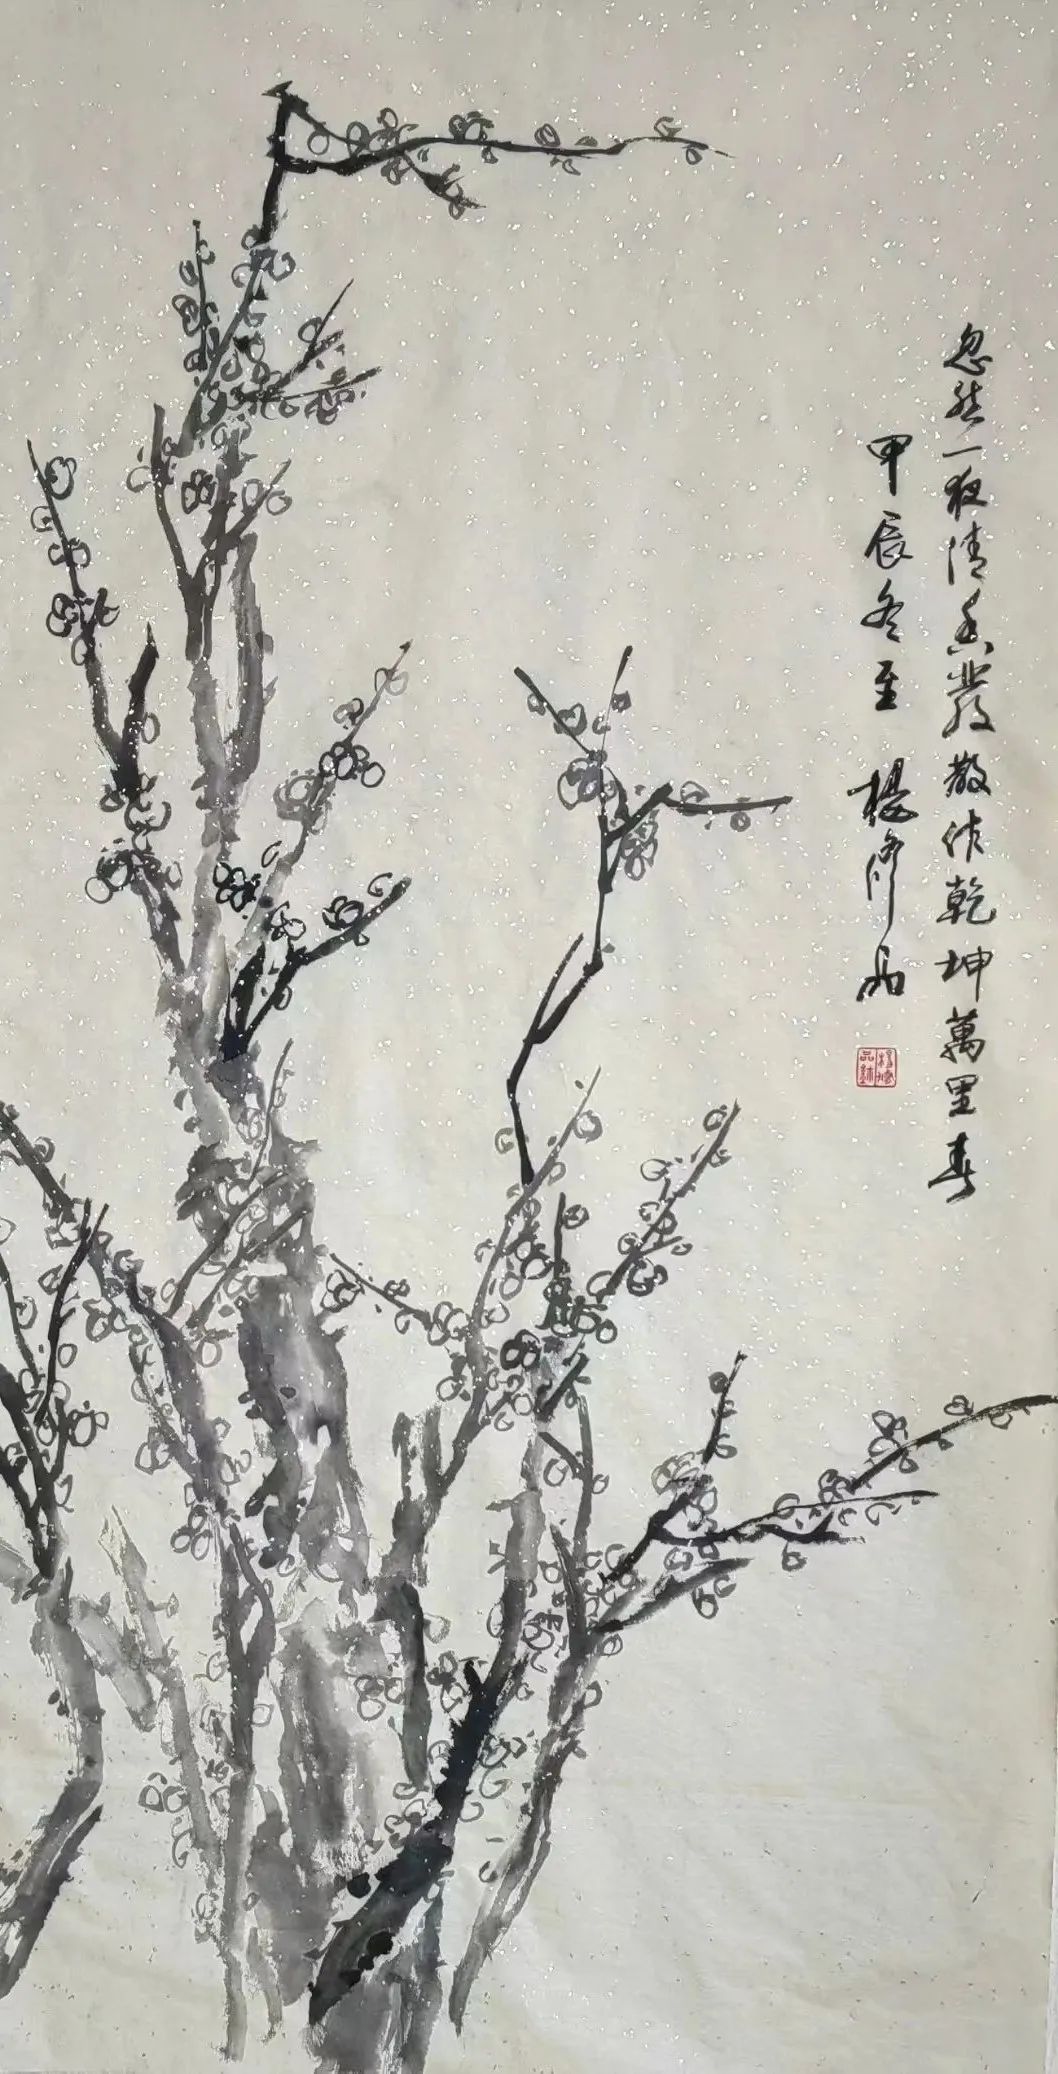 忽然一夜清香發散作乾坤萬里春
甲辰冬至 楊修品